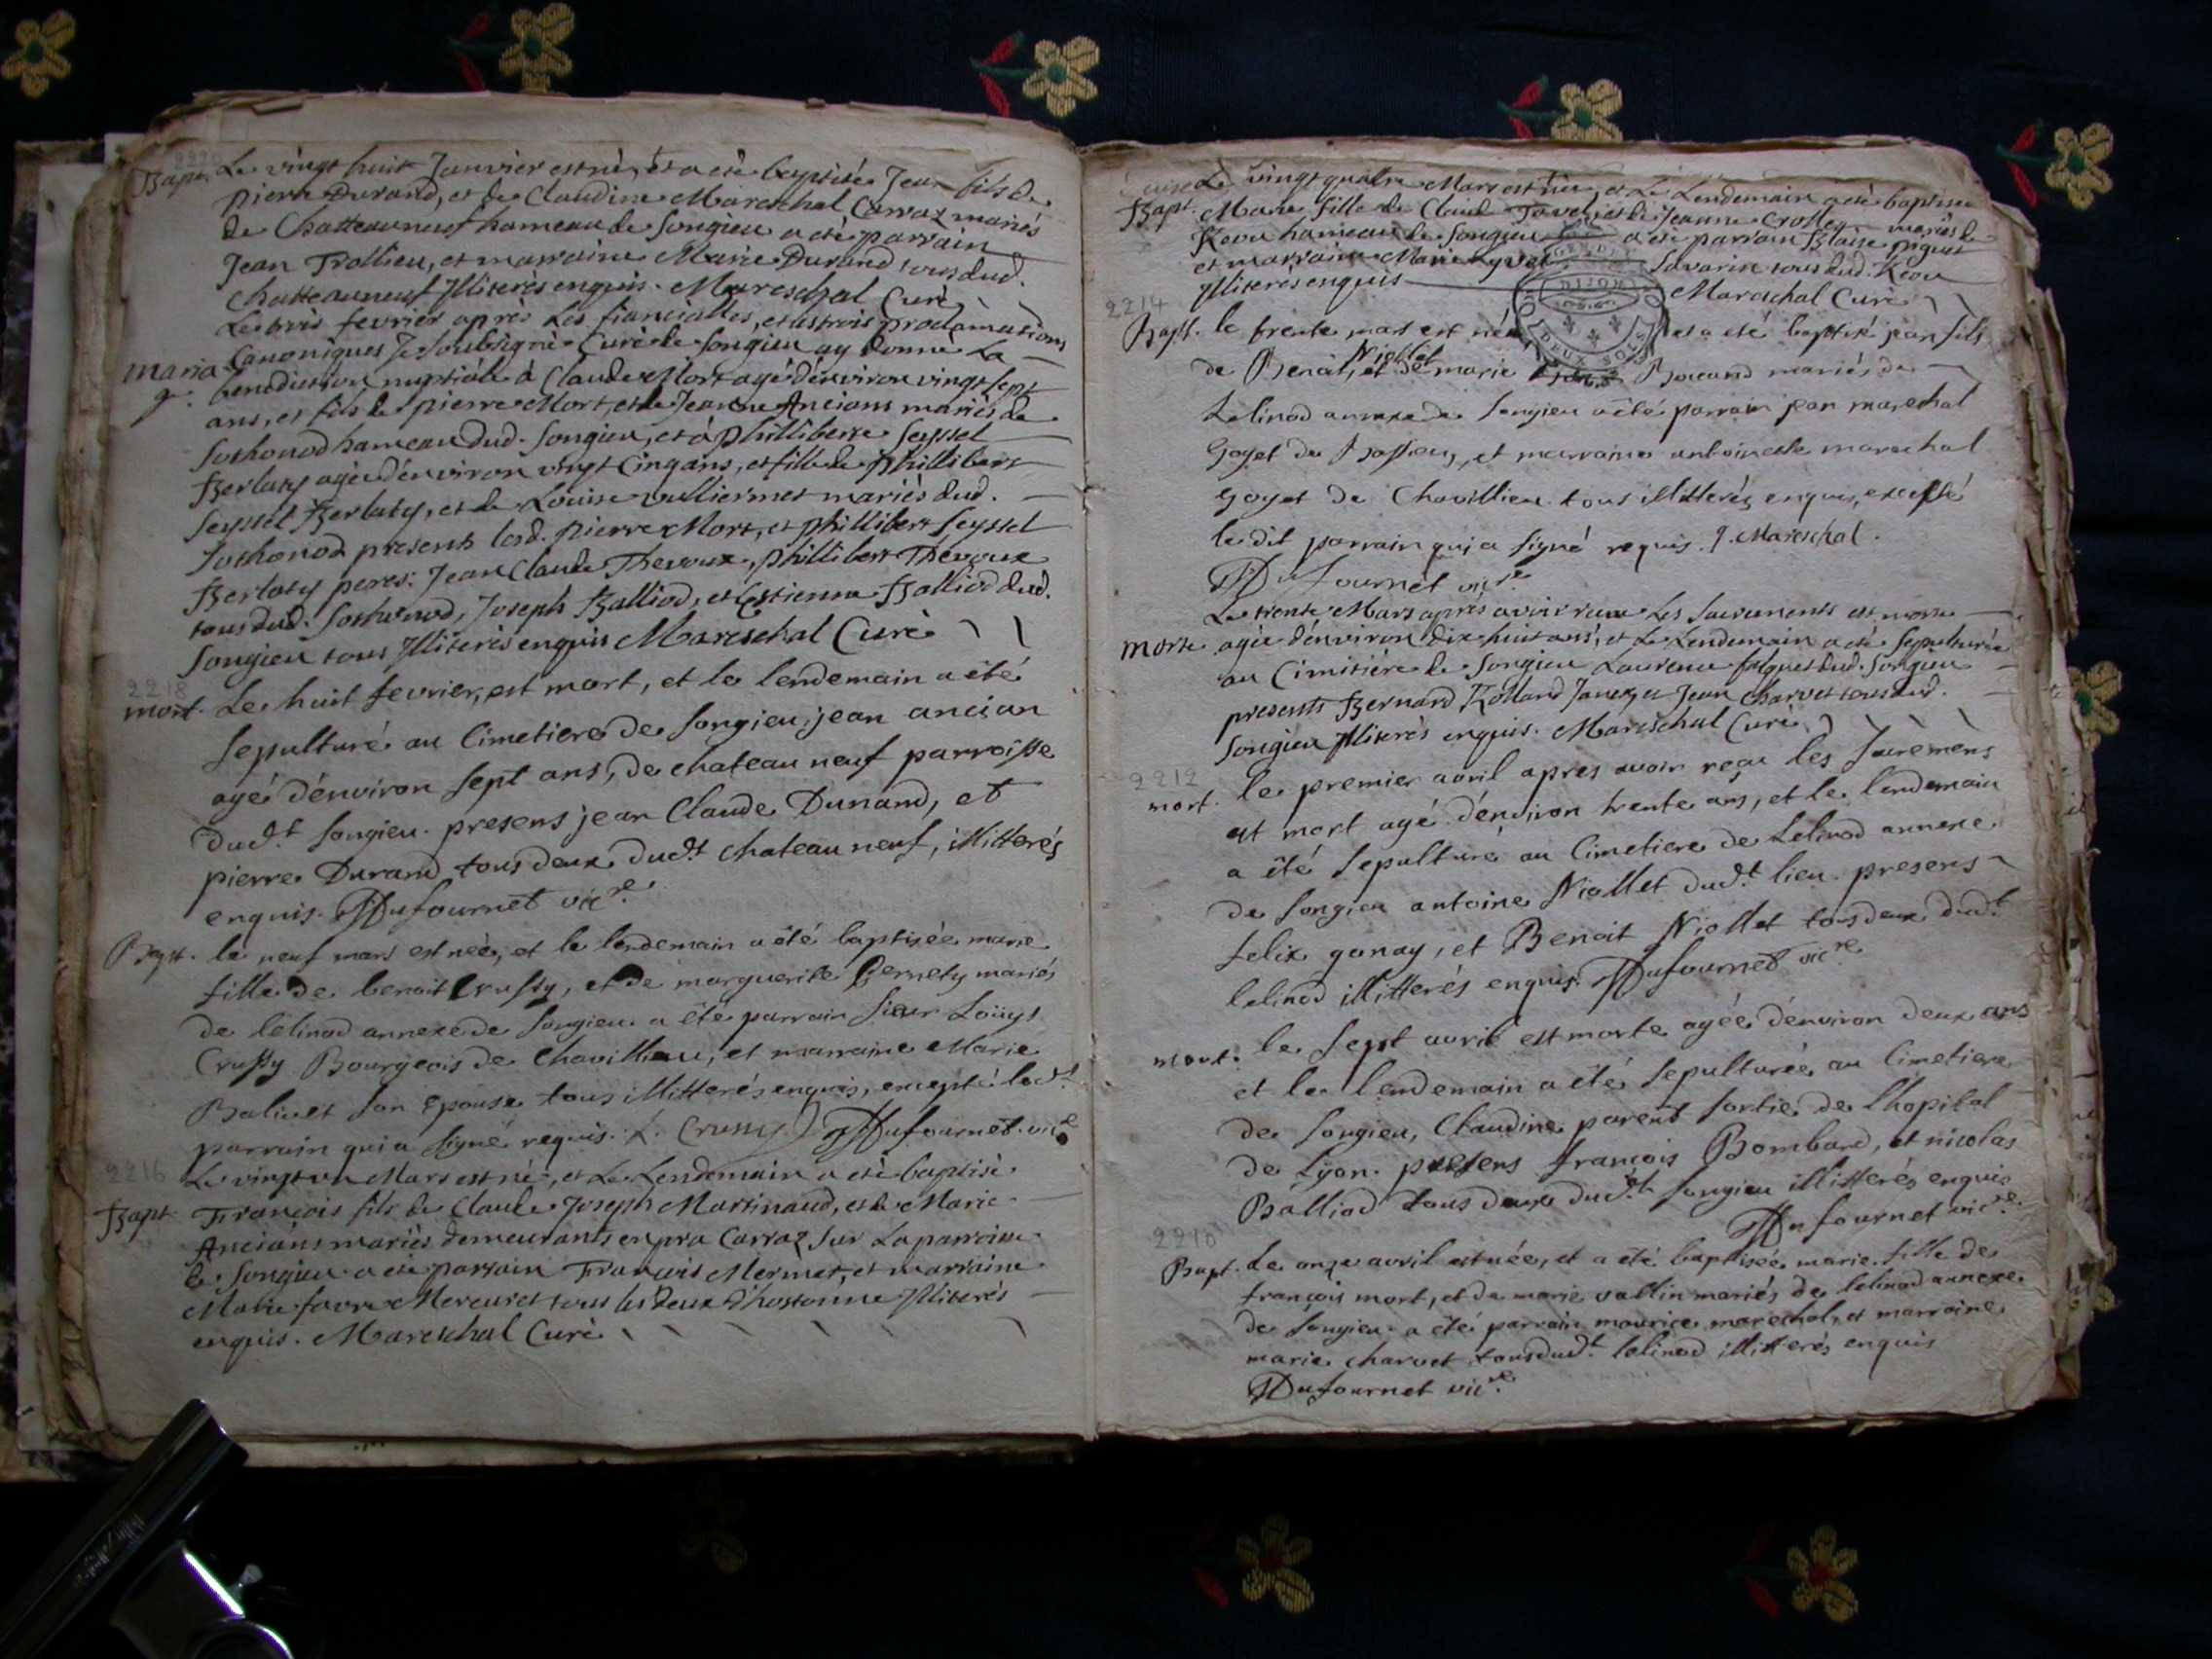 2220
Bapt. Le vingt huit Janvier est né, et a eté baptisée Jean fils de
pierre Durand, et de Claudine Mareschal Carraz mariés
de Chatteauneuf hameau de Songieu a eté parrain
Jean Trollieu, et marraine Marie Durand tous dud.
Chatteauneuf Illiterés enquis. Mareschal Curé
Le trois fevrier aprés les fiancialles, et les trois proclamations
maria Canoniques Je soubsigné Curé de Songieu ay donné La
g. benediction nuptiale à Claude Mort agé d'environ vingt sept
ans, et fils de pierre Mort, et de Jeanne Ancians mariés de
Sothonod hameau dud. Songieu, et à philliberte Seyssel
Berlaty agée d'environ vingt Cinq ans, et fille de phillibert
Seyssel Berlaty, et de Louise vulliermet mariés dud.
Sothonod presents lesd. pierre Mort, et phillibert Seyssel
Berlaty peres: Jean Claude Thevoux, phillibert Thévoux
tous dud. Sothonod, Joseph Balliod, et Estienne Balliod dud.
Songieu tous Illiterés enquis Mareschal Curé
2218
mort. Le huit fevrier, est mort, et le lendemain a été
sepulturé au Cimetiere de Songieu, jean ancian
agé d'environ sept ans, de chateau neuf parroisse
dud.t Songieu. presens jean Claude Dunand, et
pierre Durand tous deux dud.t chateau neuf, illitterés
enquis. Dufournet vic.re
Bapt. le neuf mars est née, et le lendemain a été baptisée marie
fille de benoit Crussy, et de marguerite Bernety mariés
de lélinod annexe de Songieu. a été parrain sieur Loüys
Crussy Bourgeois de Chavillieu, et marraine Marie
Balivet son epouse tous illitterés enquis, excepté led.t
parrain qui a signé requis. L. Crussy Dufournet vic.re
2216
Le vingt un Mars est né, et Le Lendemain a eté baptisé
Bapt. François fils de Claude Joseph Martinaud, et de Marie
Ancians mariés demeurants en pra Carraz sur La parroisse
de Songieu a eté parrain François Mermet, et marraine
Marie favre Mercuret tous les deux d'hostonne Illiterés
enquis. Mareschal Curé
Le vingt quatre Mars est née, et Le Lendemain a eté baptisée
Bapt. Marie fille de Claude Tavel, et de Jeanne Crottey mariés de
Keou hameau de Songieu a eté parrain Blaise piguet
et marraine Marie Savarin tous dud. Keou
Illiterés enquis Mareschal Curé
DIJON
DEUX SOLS
2214
Bapt. le trente mars est né et a eté baptisé jean fils
de Benoit Niollet, et de marie Bouvand mariés de
Lelinod annexe de Songieu a été parrain jean marechal
goyet de Bassieu, et marraine antoinette marechal
goyet de Chavillieu tous illitterés enquis, excepté
ledit parrain qui a signé requis. J. Mareschal.
Dufournet vic.re
Le trente Mars aprés avoir receu Les Sacrements est morte
morte agée d'environ dix huit ans, et Le Lendemain a eté sepulturée
au Cimitiére de Songieu Laurence falquet dud. Songieu
presents Bernard Rolland Janex, et Jean Charvet tous dud.
Songieu Illiterés enquis. Mareschal Curé
2212
mort. le premier avril apres avoir reçu les sacremens
est mort agé d'environ trente ans, et le lendemain
a été sepulturé au Cimetiere de Lelinod annexe
de Songieu antoine Niollet dud.t lieu. presens
felix gonay, et Benoit Niollet tous deux dud.t
lelinod illitterés enquis. Dufournet vic.re
mort. le sept avril est morte agée d'environ deux ans
et le lendemain a été sepulturée au Cimetiere
de Songieu, Claudine parent sortie de lhopital
de Lyon. presens françois Bombard, et nicolas
Balliod tous deux dud.t Songieu illitterés enquis
Dufournet vic.re
2210
Bapt. Le onze avril est née, et a été baptisée marie fille de
françois mort, et de marie vallin mariés de lelinod annexe
de Songieu. a été parrain maurice marechal, et marraine
marie charvet tous dud.t lelinod illitterés enquis
Dufournet vic.re